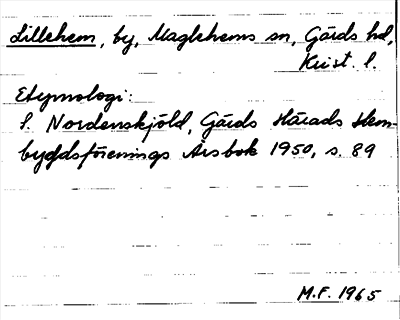 Lillehem, by, Maglehems sn, Gärds hd,
Krist. l.
Etymologi:
S. Nordenskjöld, Gärds Härads Hem-
bygdsförenings Årsbok 1950, s. 89
M.F. 1965